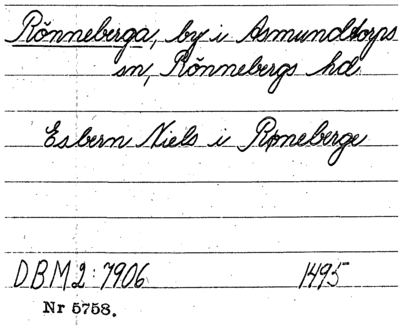 Rönneberga, by i Asmundtorps
sn, Rönnebergs hd
Esbern Niels i Røneberge
DBM2:7906 1495
Nr 5758.